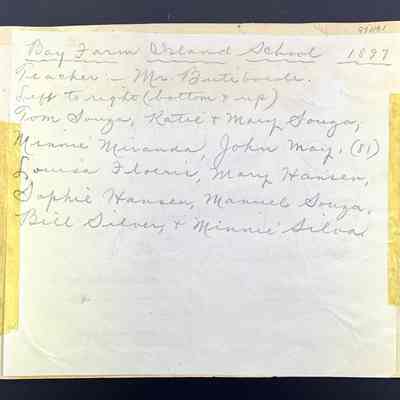 Bay Farm Island School 1897
Teacher - Mr.
Left to right (bottom & up)
Tom Souza, Katie & Mary Souza,
Minnie Miranda, John May, (81)
Louisa Flores, Mary Hansen,
Sophie Hansen, Manuel Souza,
Bill Silver, & Minnie Silva